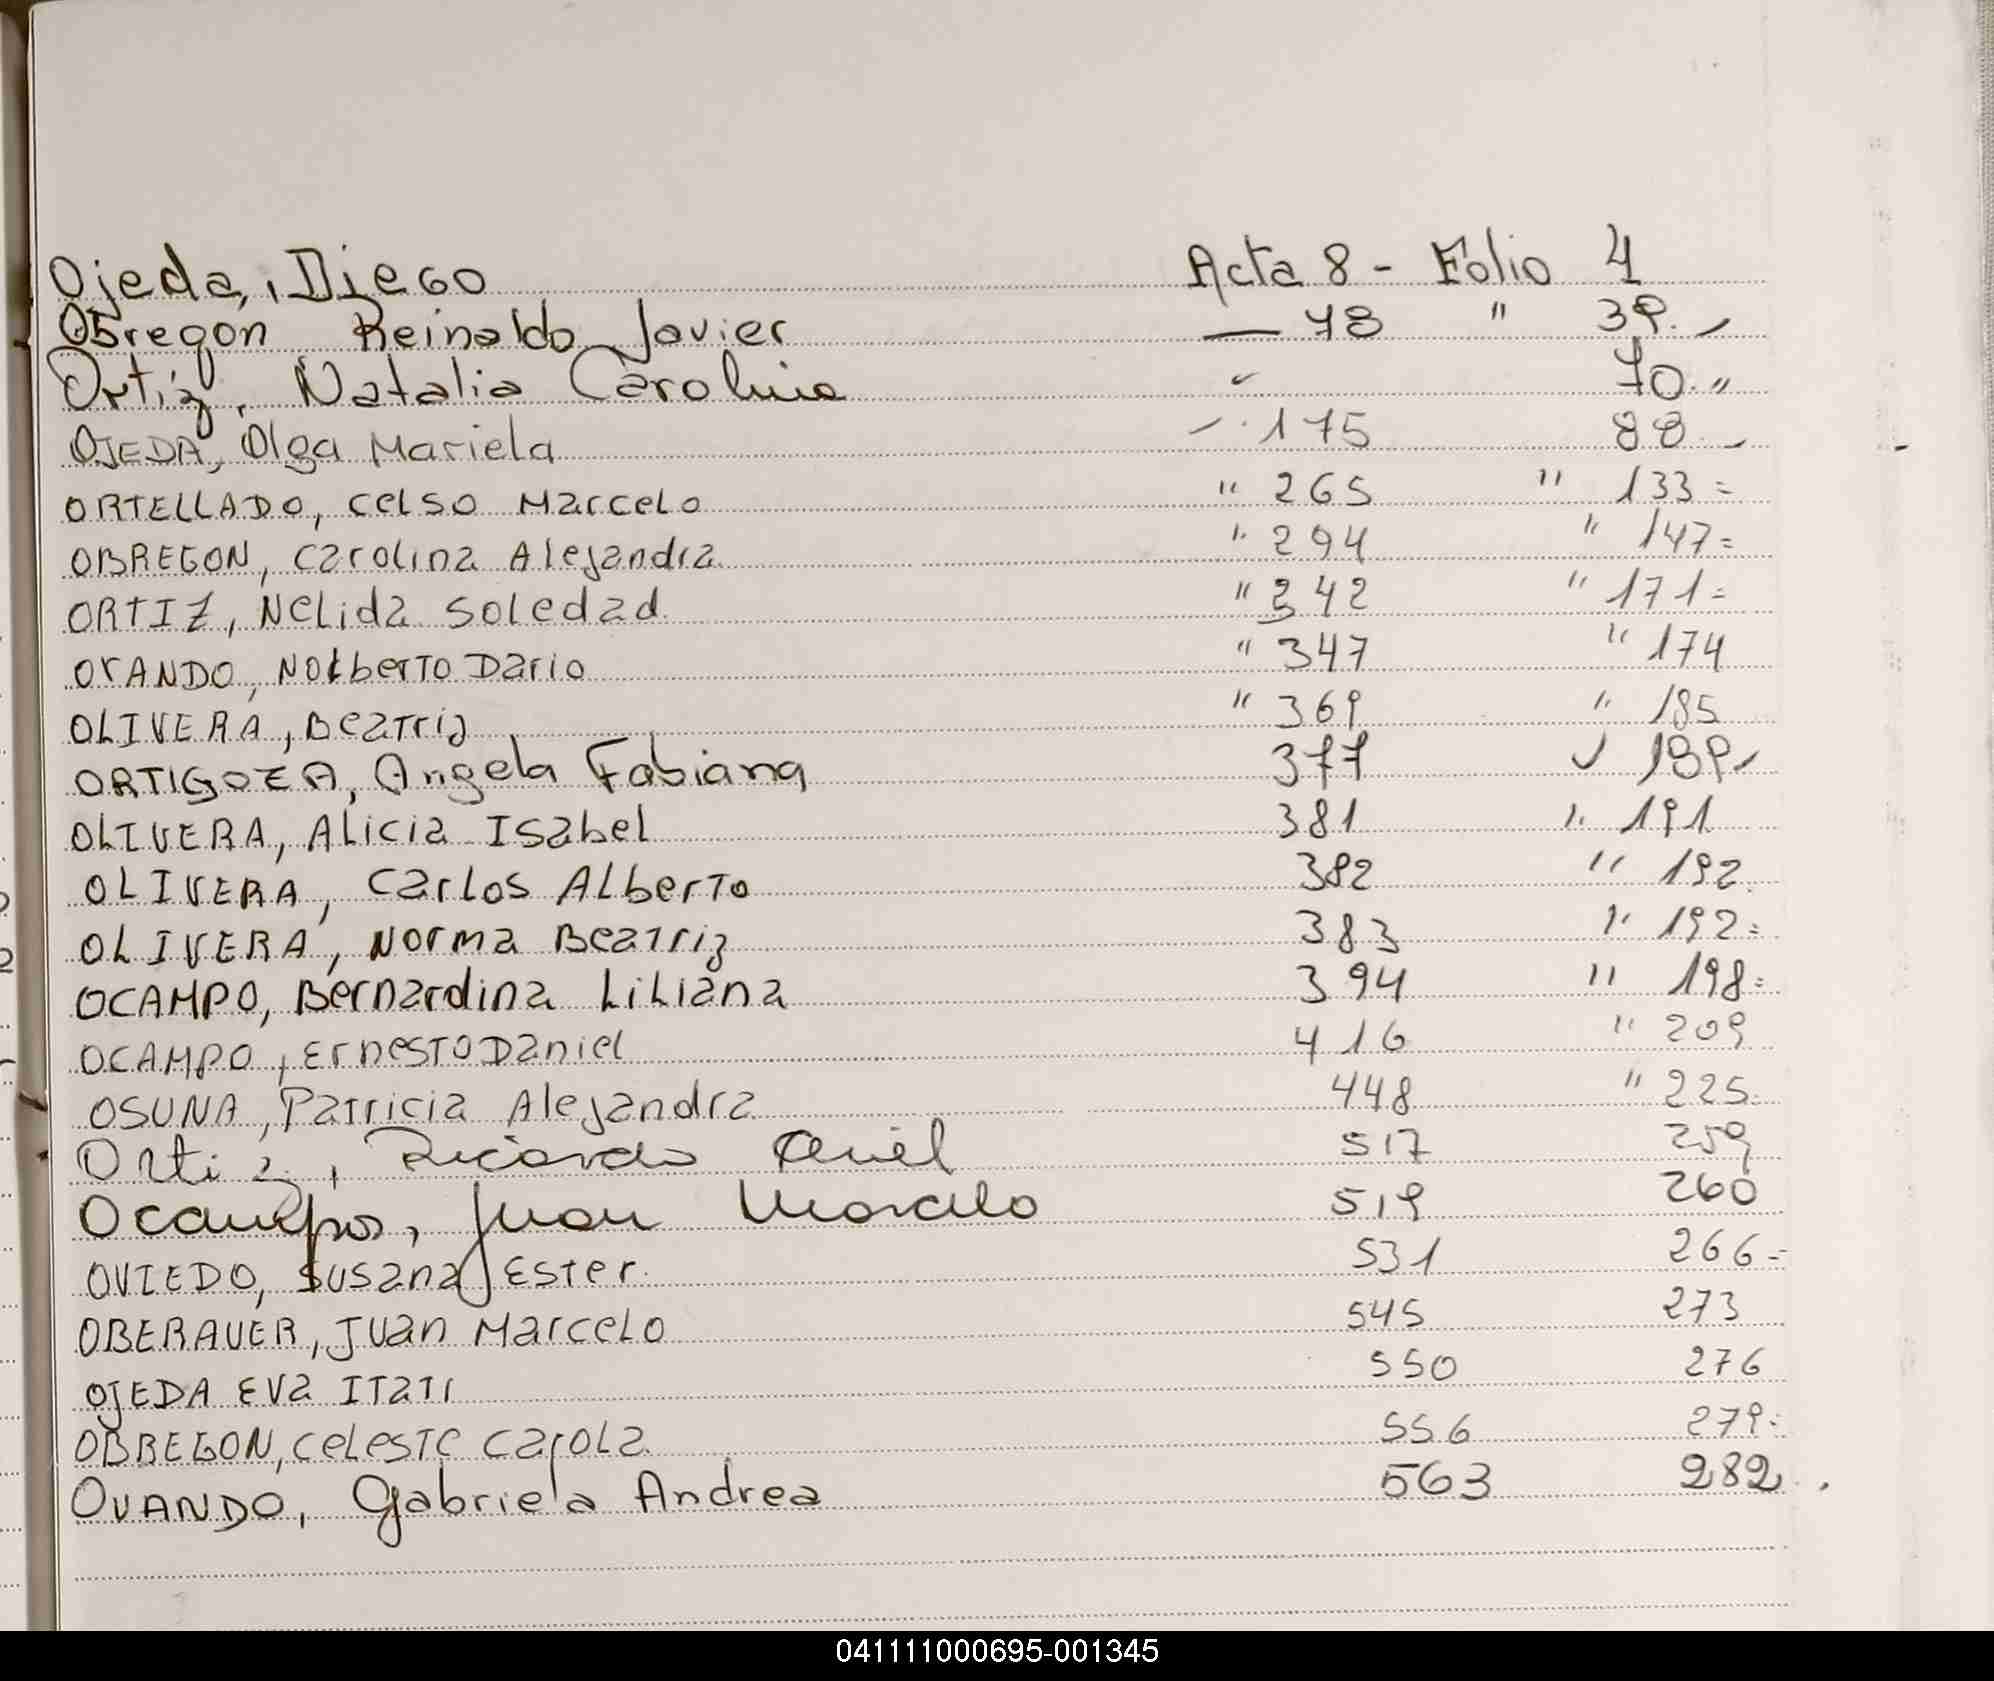 Ojeda, Diego Acta 8 - Folio 4
Obregon Reinaldo Javier — 78 " 39. -
Ortiz, Natalia Carolina " 70 "
OJEDA, Olga Mariela - 175 88 -
ORTELLADO, Celso Marcelo " 265 " 133 =
OBREGON, Carolina Alejandra " 294 " 147 =
ORTIZ, Nelida Soledad " 342 " 171 =
OVANDO, Nolberto Dario " 347 " 174
OLIVERA, Beatriz " 369 " 185
ORTIGOZA, Angela Fabiana 377 " 189 -
OLIVERA, Alicia Isabel 381 " 191
OLIVERA, Carlos Alberto 382 " 192
OLIVERA, Norma Beatriz 383 " 192 =
OCAMPO, Bernardina Liliana 394 " 198 =
OCAMPO, Ernesto Daniel 416 " 209
OSUNA, Patricia Alejandra 448 " 225
Ortiz, Ricardo Ariel 517 259
Ocampo, Juan Marcelo 519 260
OVIEDO, Susana Ester 531 266 =
OBERAUER, Juan Marcelo 545 273
OJEDA Eva Itati 550 276
OBREGON, Celeste Carola 556 279 =
OVANDO, Gabriela Andrea 563 282
041111000695-001345